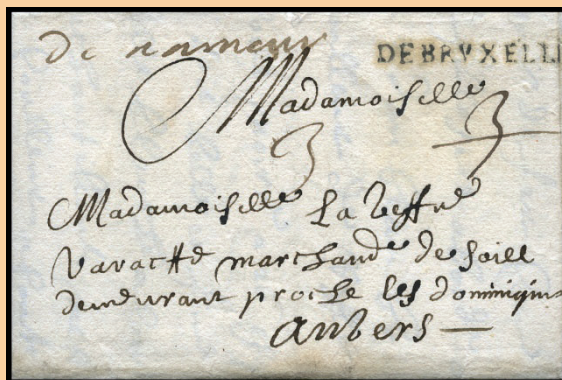 de namur DEBRVXELL
Madamoiselle
3 3
Madamoiselle La veffve
marchande de soiee
demeurant proche les dominiquin
anvers